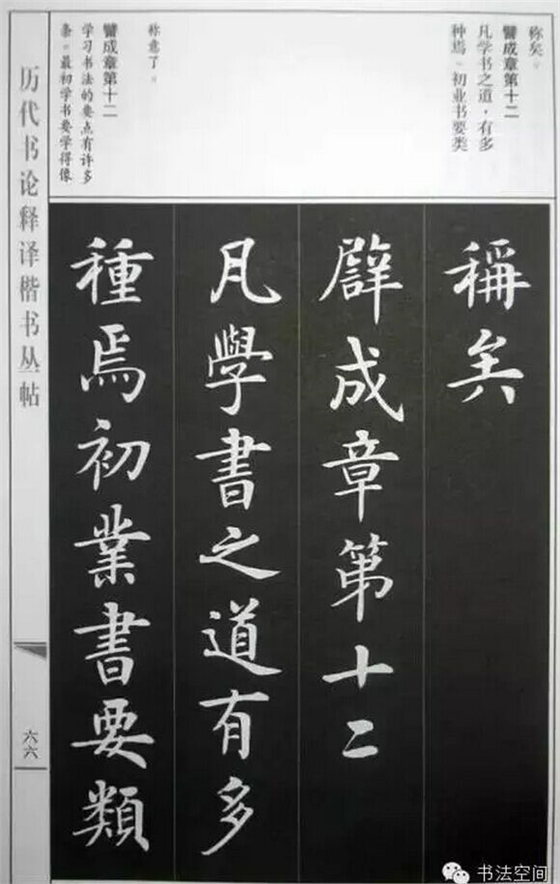 称矣。
譬成章第十二
凡学书之道，有多
种焉、初业书要类
称意了。
譬成章第十二
学习书法的要点有许多
条。最初学书要学得像
稱矣
譬成章第十二
凡學書之道有多
種焉初業書要類
历代书论释译楷书丛帖
六六
书法空间